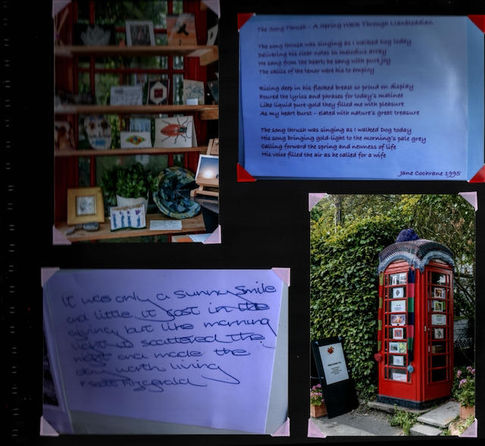 The Song Thrush - A Spring Walk Through Llanbadarn
The song thrush was singing as I walked Dog today
Delivering his clear notes in melodius array
He sang from the heart; he sang with pure joy
The skills of the tenor were his to employ
Rising deep in his flecked breast so proud on display
Poured the lyrics and phrases for today's matinee
Like liquid pure gold they filled me with pleasure
As my heart burst - elated with nature's great treasure
The song thrush was singing as I walked Dog today
His song bringing gold light to the morning's pale grey
Calling forward the spring and newness of life
His voice filled the air as he called for a wife
Jane Cochrane 1995
It was only a sunny smile
and little it cost in the
giving but like morning
light it scattered the
night and made the
day worth living
F Scott Fitzgerald